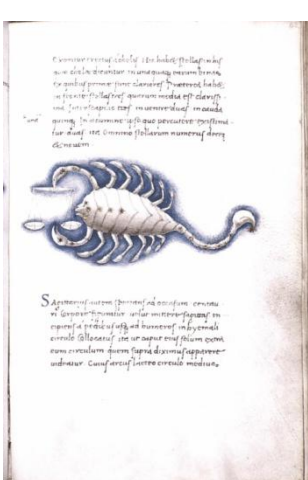 stellas in his
quæ chelæ dicuntur in unaquaq; earum binas
Ex quibus primæ sunt clariores. Præterea habet
in fronte stellas tres quarum media est clarissi
ma. In
quinq; In acumine ipso quo percutere existima
tur duas. ita omnino stellarum numerus decē
& nouem.
Sagittarius autem spectans ad occasum centau
ri corpore figuratur uelut mittere sagittas in
cipiens a pedibus usq; ad humeros in hyemali
circulo collocatus ita ut caput eius solum extra
eum circulum quem supra diximus apparere
uideatur. Cuius arcus lacteo circulo medius